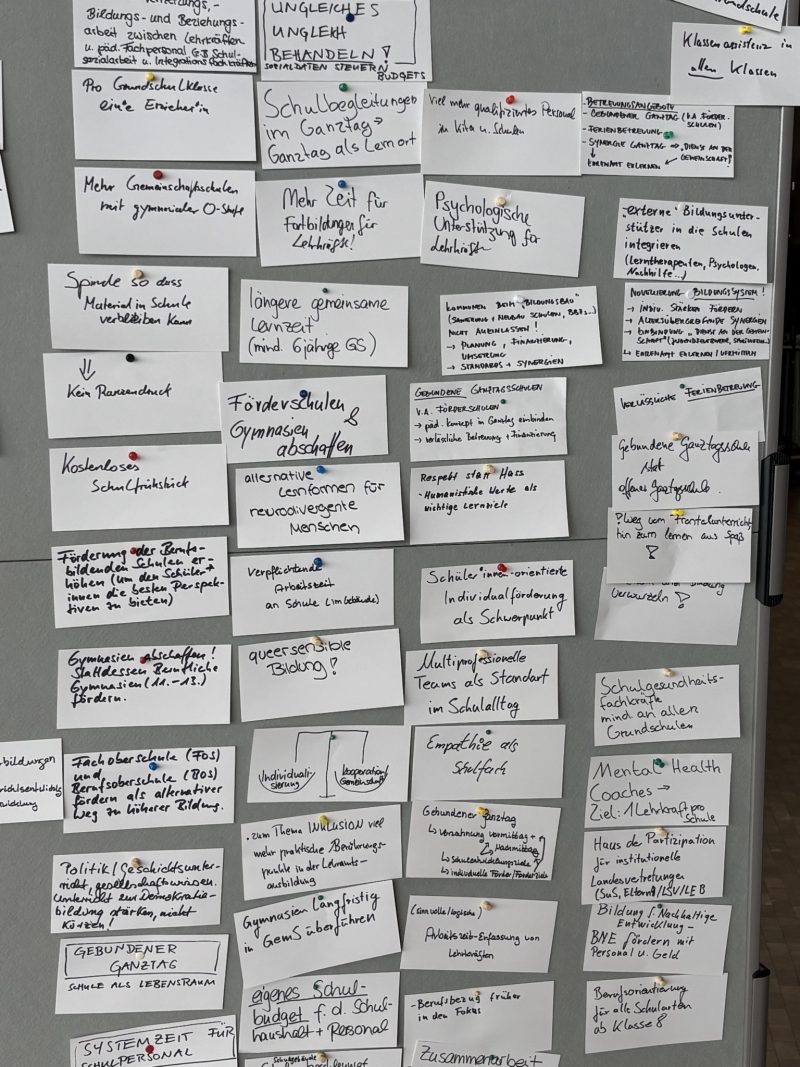 Bildungs- und Beziehungs-
arbeit zwischen Lehrkräften
u. päd. Fachpersonal z.B. Schul-
sozialarbeit u. Integrationsfachkräften
Pro Grundschulklasse
ein*e Erzieher*in
Mehr Gemeinschaftsschulen
mit gymnasialer O-Stufe
Spinde so dass
Material in Schule
verbleiben kann
⇓
Kein Ranzendruck
Kostenloses
Schulfrühstück
Förderung der Berufs-
bildenden Schulen er-
höhen (um den Schüler*
innen die besten Perspek-
tiven zu bieten)
Gymnasien abschaffen!
Stattdessen Berufliche
Gymnasien (11.-13.)
fördern.
Fachoberschule (FOS)
und
Berufsoberschule (BOS)
fördern als alternativer
Weg zu höherer Bildung.
Politik/Geschichtsunter-
richt, gesellschaftswissen.
Unterricht zur Demokratie-
bildung stärken, nicht
kürzen!
GEBUNDENER
GANZTAG
SCHULE ALS LEBENSRAUM
SYSTEMZEIT FÜR
SCHULPERSONAL
UNGLEICHES
UNGLEICH
BEHANDELN!
SOZIALDATEN STEUERN
BUDGETS
Schulbegleitungen
im Ganztag →
Ganztag als Lernort
Mehr Zeit für
Fortbildungen für
Lehrkräfte!
längere gemeinsame
Lernzeit
(mind. 6jährige GS)
Förderschulen
&
Gymnasien
abschaffen
alternative
Lernformen für
neurodivergente
Menschen
Verpflichtende
Arbeitszeit
an Schule (im Gebäude)
queersensible
Bildung!
Individuali-
sierung
Kooperation/
Gemeinschaft
· zum Thema INKLUSION viel
mehr praktische Berührungs-
punkte in der Lehramts-
ausbildung
Gymnasien langfristig
in GemS überführen
eigenes Schul-
budget f. d. Schul-
haushalt + Personal
viel mehr qualifiziertes Personal
in Kita u. Schulen
Psychologische
Unterstützung für
Lehrkräfte
KOMMUNEN BEIM "BILDUNGSBAU"
(SANIERUNG + NEUBAU SCHULEN, BBS...)
NICHT ALLEINLASSEN!
→ PLANUNG, FINANZIERUNG,
UMSETZUNG
→ STANDARDS + SYNERGIEN
GEBUNDENE GANZTAGSSCHULEN
V.A. FÖRDERSCHULEN
→ päd. Konzept in Ganztag einbinden
→ verlässliche Betreuung + Finanzierung
Respekt statt Hass
- Humanistische Werte als
wichtige Lernziele
Schüler*innen-orientierte
Individualförderung
als Schwerpunkt
Multiprofessionelle
Teams als Standart
im Schulalltag
Empathie als
Schulfach
Gebundener Ganztag
↳ Verzahnung Vormittag +
Nachmittag
↳ Schulentwicklungsziele
↳ individuelle Förder/Förderziele
(sinnvolle/logische)
Arbeitszeit-Erfassung von
Lehrkräften
- Berufsbezug früher
in den Fokus
Zusammenarbeit
Klassenassistenz in
allen Klassen
- BETREUUNGSANGEBOTE
- GEBUNDENER GANZTAG (V.A. FÖRDER-
SCHULEN)
- FERIENBETREUUNG
- SYNERGIE GANZTAG → "DIENST AN DER
GEMEINSCHAFT"
EHRENAMT ERLERNEN
· externe Bildungsunter-
stützer in die Schulen
integrieren
(Lerntherapeuten, Psychologen,
Nachhilfe...)
NOVELLIERUNG BILDUNGSSYSTEM!
→ INDIV. STÄRKEN FÖRDERN
→ ALTERSÜBERGREIFENDE SYNERGIEN
→ EINBINDUNG "DIENST AN DER GEMEIN-
↳ EHRENAMT ERLERNEN/VERMITTELN
VERLÄSSLICHE FERIENBETREUUNG
Gebundene Ganztagsschule
stat
offener Ganztagsschule.
Weg vom Frontalunterricht,
hin zum lernen aus Spaß
!
verwurzeln!
Schulgesundheits-
fachkräfte
mind. an allen
Grundschulen
Mental Health
Coaches →
Ziel: 1 Lehrkraft pro
Schule
Haus de Partizipation
für institutionelle
Landesvertretungen
(SuS, Eltern/LSV/LEB
Bildung f. Nachhaltige
Entwicklung –
BNE fördern mit
Personal u. Geld
Berufsorientierung
für alle Schularten
ab Klasse 8